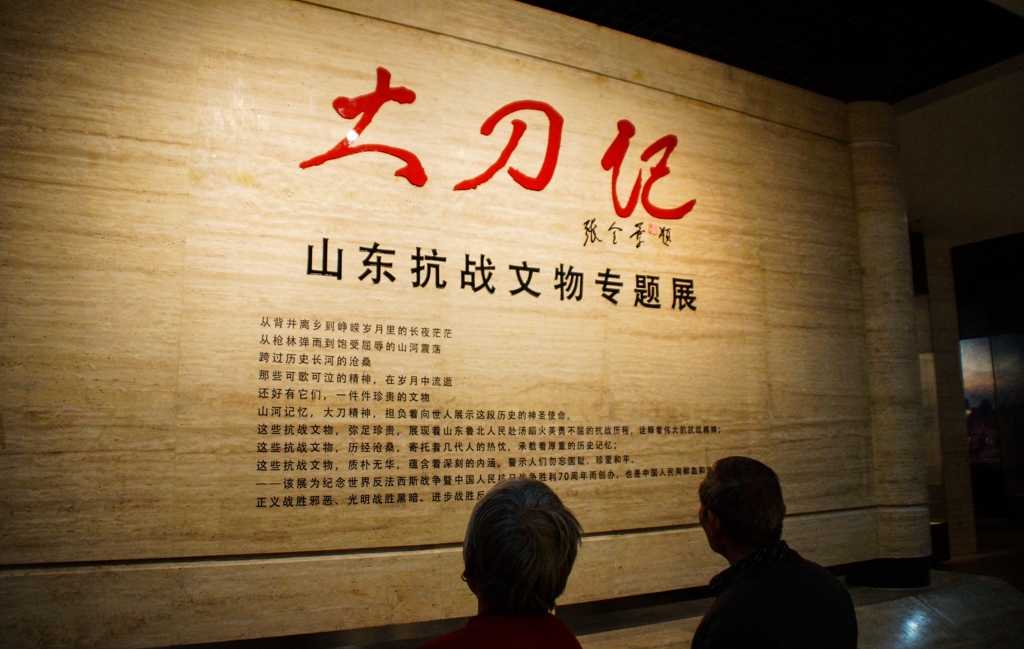 大刀记
张全景 题
山东抗战文物专题展
从背井离乡到峥嵘岁月里的长夜茫茫
从枪林弹雨到饱受屈辱的山河震荡
跨过历史长河的沧桑
那些可歌可泣的精神，在岁月中流逝
还好有它们，一件件珍贵的文物
山河记忆，大刀精神，担负着向世人展示这段历史的神圣使命。
这些抗战文物，弥足珍贵，展现着山东鲁北人民赴汤蹈火英勇不屈的抗战历程，诠释着伟大的抗战精神；
这些抗战文物，历经沧桑，寄托着几代人的热忱，承载着厚重的历史记忆；
这些抗战文物，质朴无华，蕴含着深刻的内涵，警示人们勿忘国耻、珍爱和平。
——该展为纪念世界反法西斯战争暨中国人民抗日战争胜利70周年而创办，也是中国人民用鲜血和
正义战胜邪恶、光明战胜黑暗、进步战胜